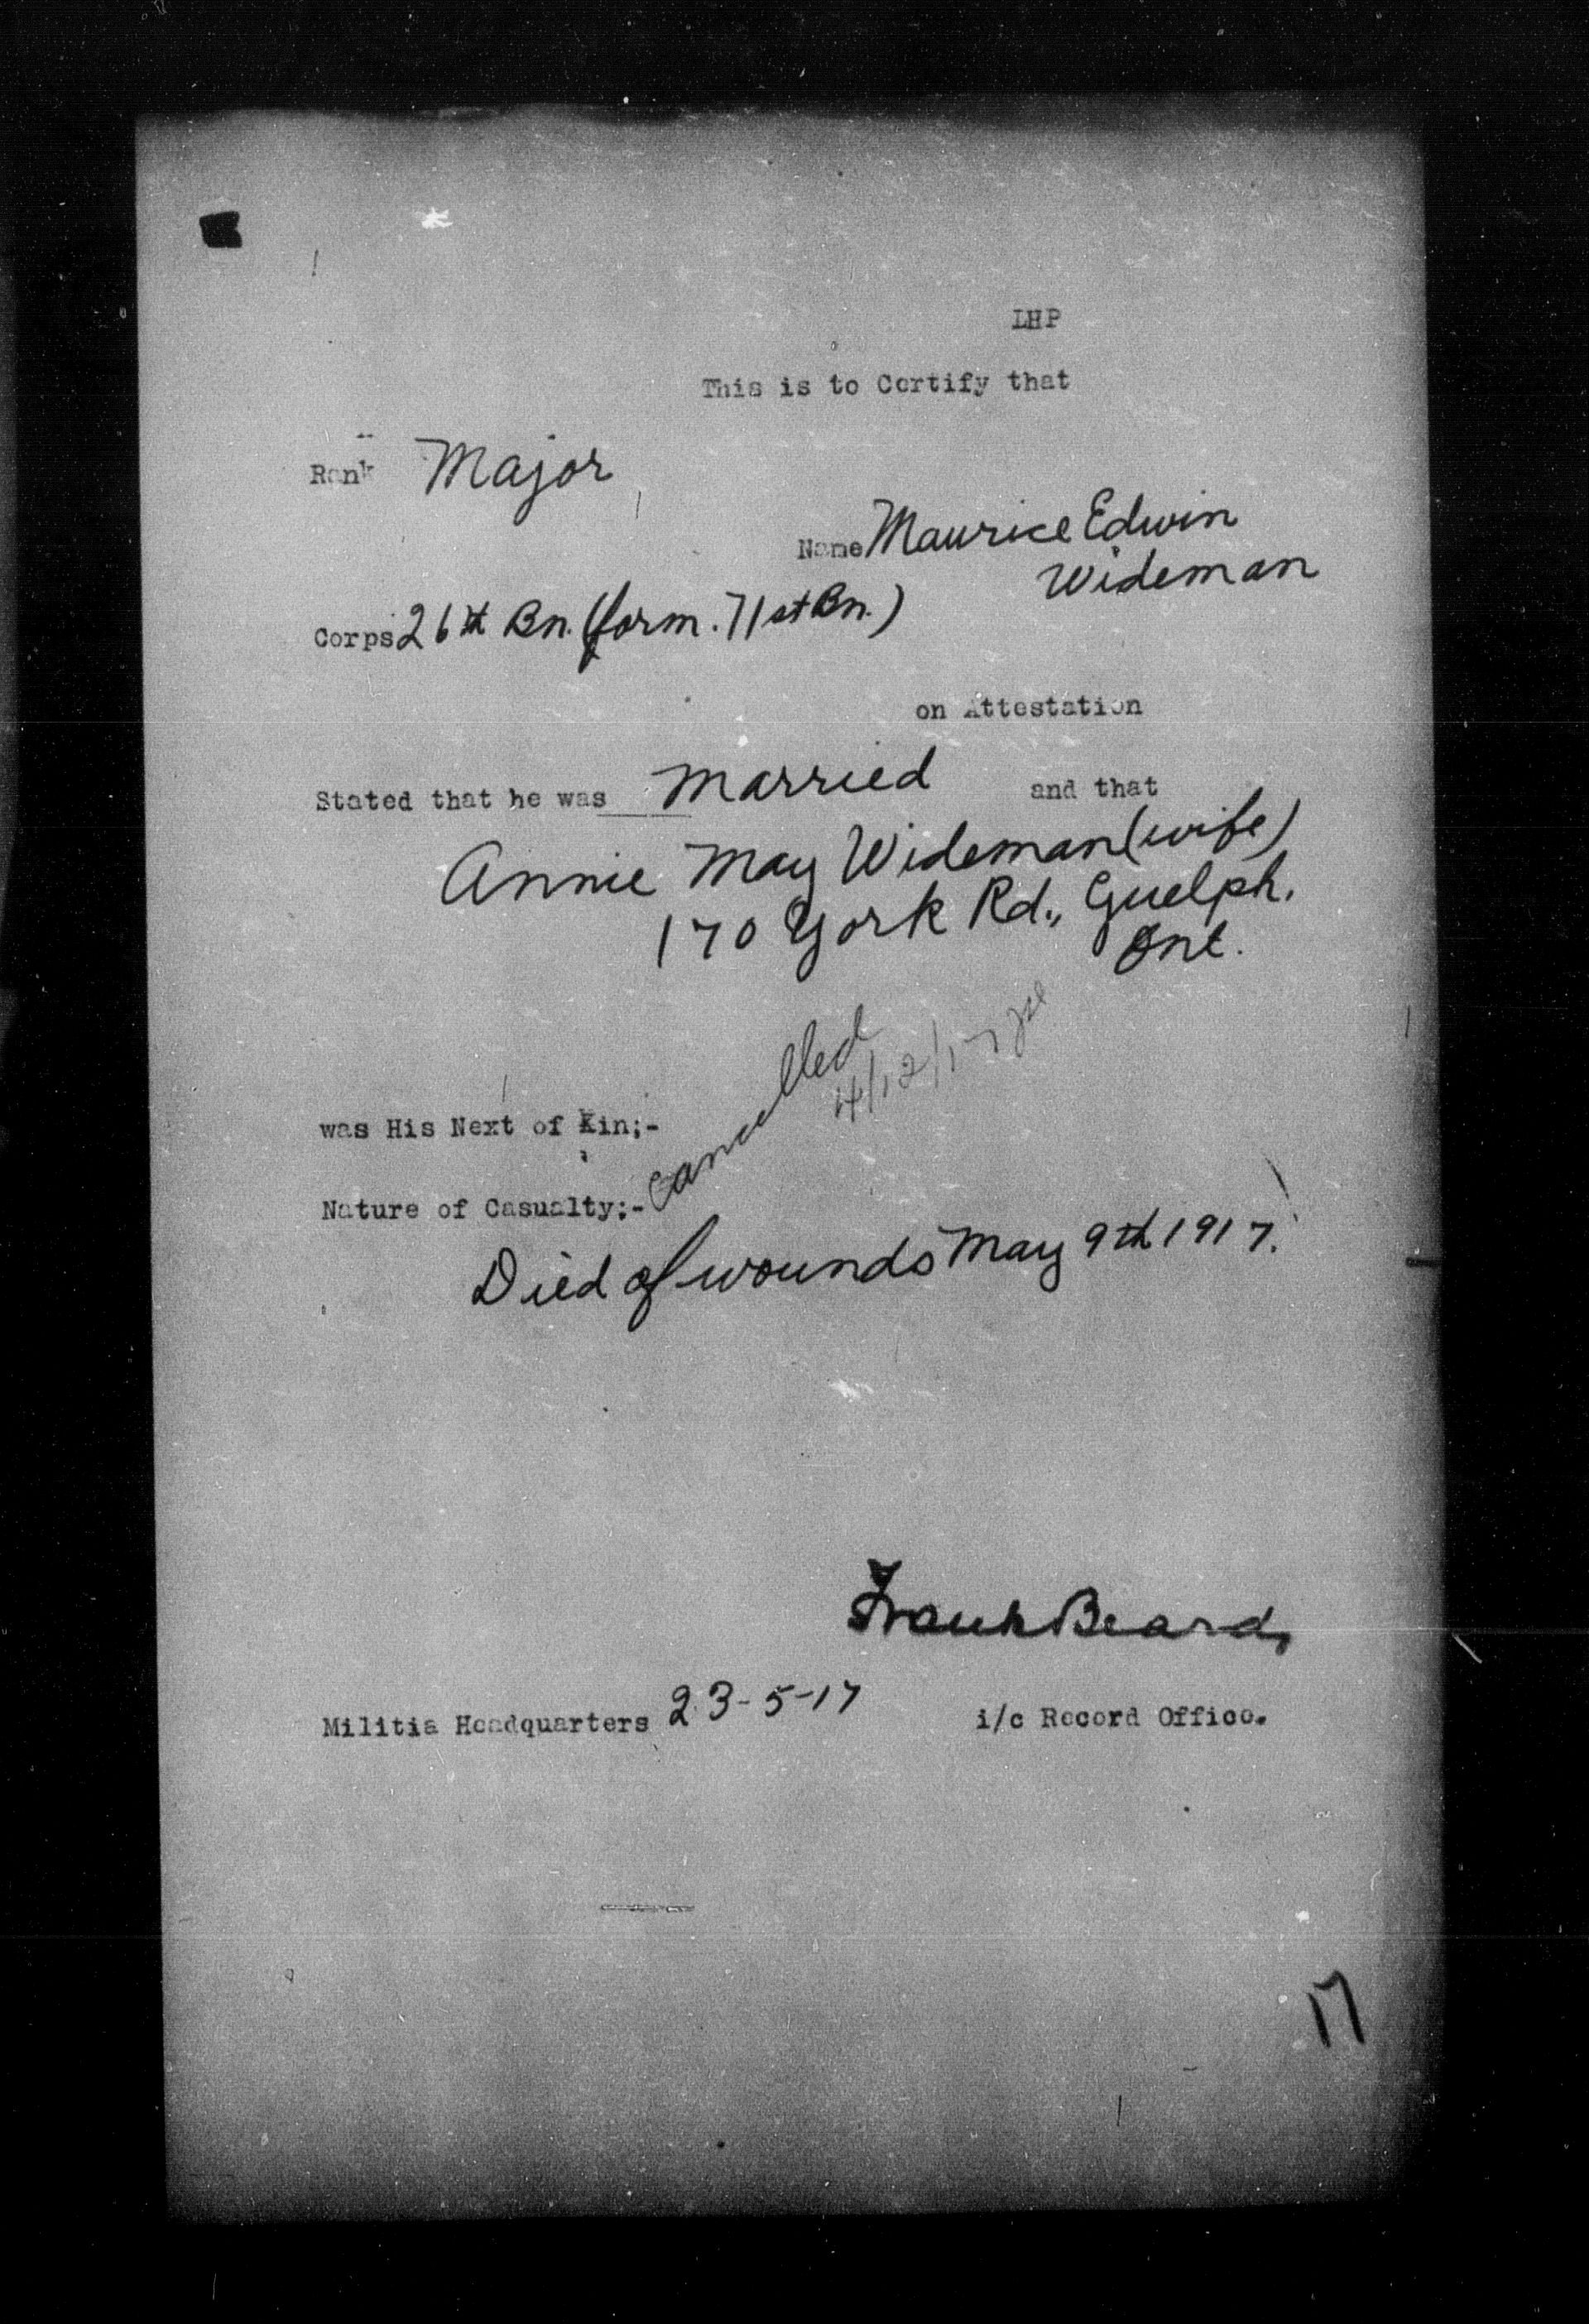 LHP
This is to Certify that
Rank Major
Name Maurice Edwin
Wideman
Corps 26th Bn. (form. 71st Bn.)
on Attestation
Stated that he was Married and that
Annie May Wideman (wife)
170 York Rd., Guelph,
Ont.
cancelled
4/12/17
was His Next of Kin;-
Nature of Casualty;-
Died of wounds May 9th 1917.
Frank Beard,
Militia Headquarters 23-5-17 i/c Record Office.
17